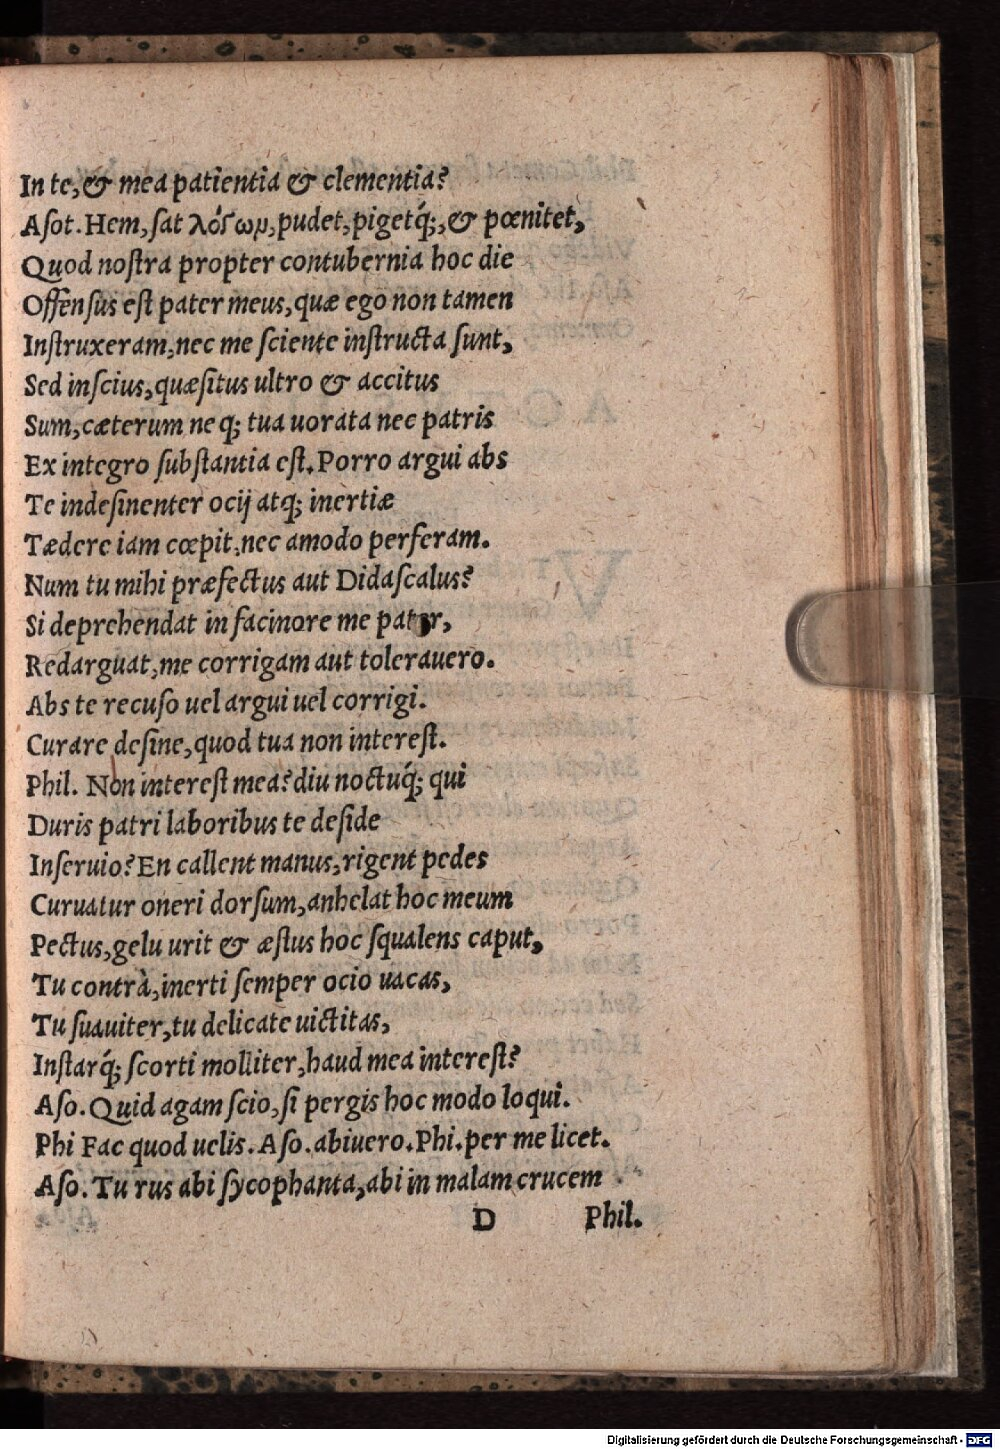 In te,& mea patientia & clementia?
Aſot. Hem,ſat λόγωμ,pudet,pigetq́;,& pœnitet,
Quod noſtra propter contubernia hoc die
Offenſus eſt pater meus,quæ ego non tamen
Inſtruxeram,nec me ſciente inſtructa ſunt,
Sed inſcius,quæſitus ultro & accitus
Sum,cæterum neq; tua uorata nec patris
Ex integro ſubſtantia eſt. Porro argui abs
Te indeſinenter ocij atq; inertiæ
Tædere iam cœpit,nec amodo perferam.
Num tu mihi præfectus aut Didaſcalus?
Si deprehendat in facinore me pater,
Redarguat,me corrigam aut tolerauero.
Abs te recuſo uel argui uel corrigi.
Curare deſine,quod tua non intereſt.
Phil. Non intereſt mea? diu noctuq́; qui
Duris patri laboribus te deſide
Inſeruio? En callent manus,rigent pedes
Curuatur oneri dorſum,anhelat hoc meum
Pectus,gelu urit & æſtus hoc ſqualens caput,
Tu contrà,inerti ſemper ocio uacas,
Tu ſuauiter,tu delicate uictitas,
Inſtarq́; ſcorti molliter,haud mea intereſt?
Aſo. Quid agam ſcio,ſi pergis hoc modo loqui.
Phi Fac quod uelis. Aſo. abiuero. Phi. per me licet.
Aſo. Tu rus abi ſycophanta,abi in malam crucem
D Phil.
Digitalisierung gefördert durch die Deutsche Forschungsgemeinschaft - DFG